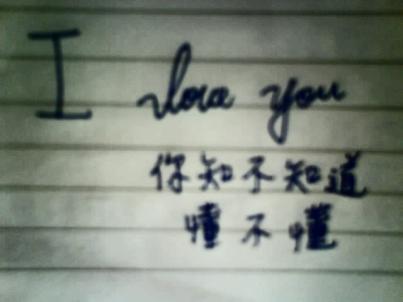 I love you
你知不知道
懂不懂